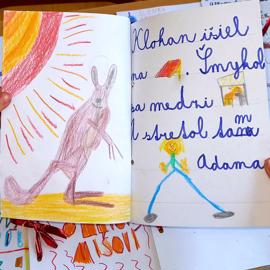 Klokan išiel
na . Šmykol
sa medzi
A stretol tam
Adama
MISOVI